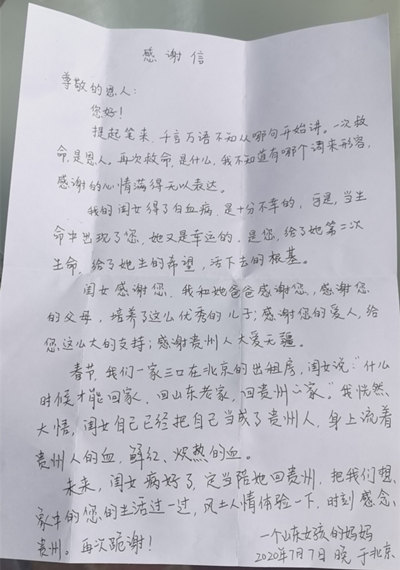 感谢信
尊敬的恩人:
您好!
提起笔来,千言万语不知从哪句开始讲。一次救
命是恩人。再次救命是什么,我不知道有哪个词来形容,
感谢的心情满得无以表达。
我的闺女得了白血病,是十分不幸的,可是,当生
命中出现了您,她又是幸运的,是您,给了她第二次
生命,给了她生的希望,活下去的根基。
闺女感谢您,我和她爸爸感谢您,感谢您
的父母,培养了这么优秀的儿子;感谢您的爱人,给
您这么大的支持;感谢贵州人大爱无疆。
春节,我们一家三口在北京的出租房,闺女说:"什么
时候才能回家,回山东老家,回贵州的家。"我恍然
大悟,闺女自己已经把自己当成了贵州人,身上流着
贵州人的血,鲜红、炽热的血。
未来,闺女病好了,定当陪她回贵州,把我们想
象中的您的生活过一过,风土人情体验一下,时刻感念、
贵州。再次跪谢!
一个山东女孩的妈妈
2020年7月7日晚于北京